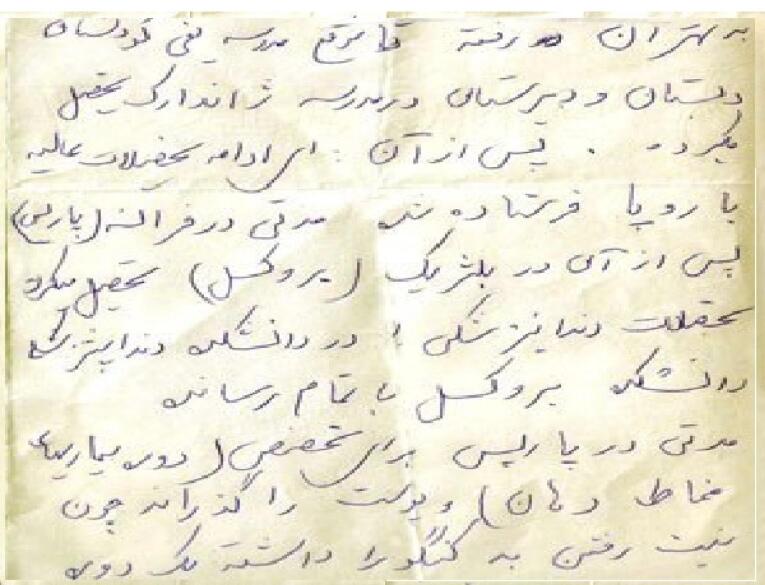 به تهران رفته تا موقع مدرسه یعنی کودکستان
دبستان و دبیرستان در مدرسه ژاندارک تحصیل
میکرد . پس از آن برای ادامه تحصیلات عالیه
باروپا فرستاده شد مدتی در فرانسه (پاریس)
پس از آن در بلژیک (بروکسل) تحصیل میکرد
تحصیلات دندانپزشکی را در دانشکده دندانپزشکی
دانشکده بروکسل باتمام رساند
مدتی در پاریس برای تخصص (دوره بیماریهای
مخاط دهان) و پوست را گذراند چون
نیت رفتن به کنگو را داشته یک دوره